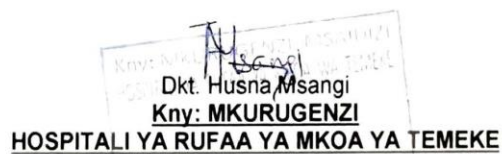 Msangi
Dkt. Husna Msangi
Kny: MKURUGENZI
HOSPITALI YA RUFAA YA MKOA YA TEMEKE